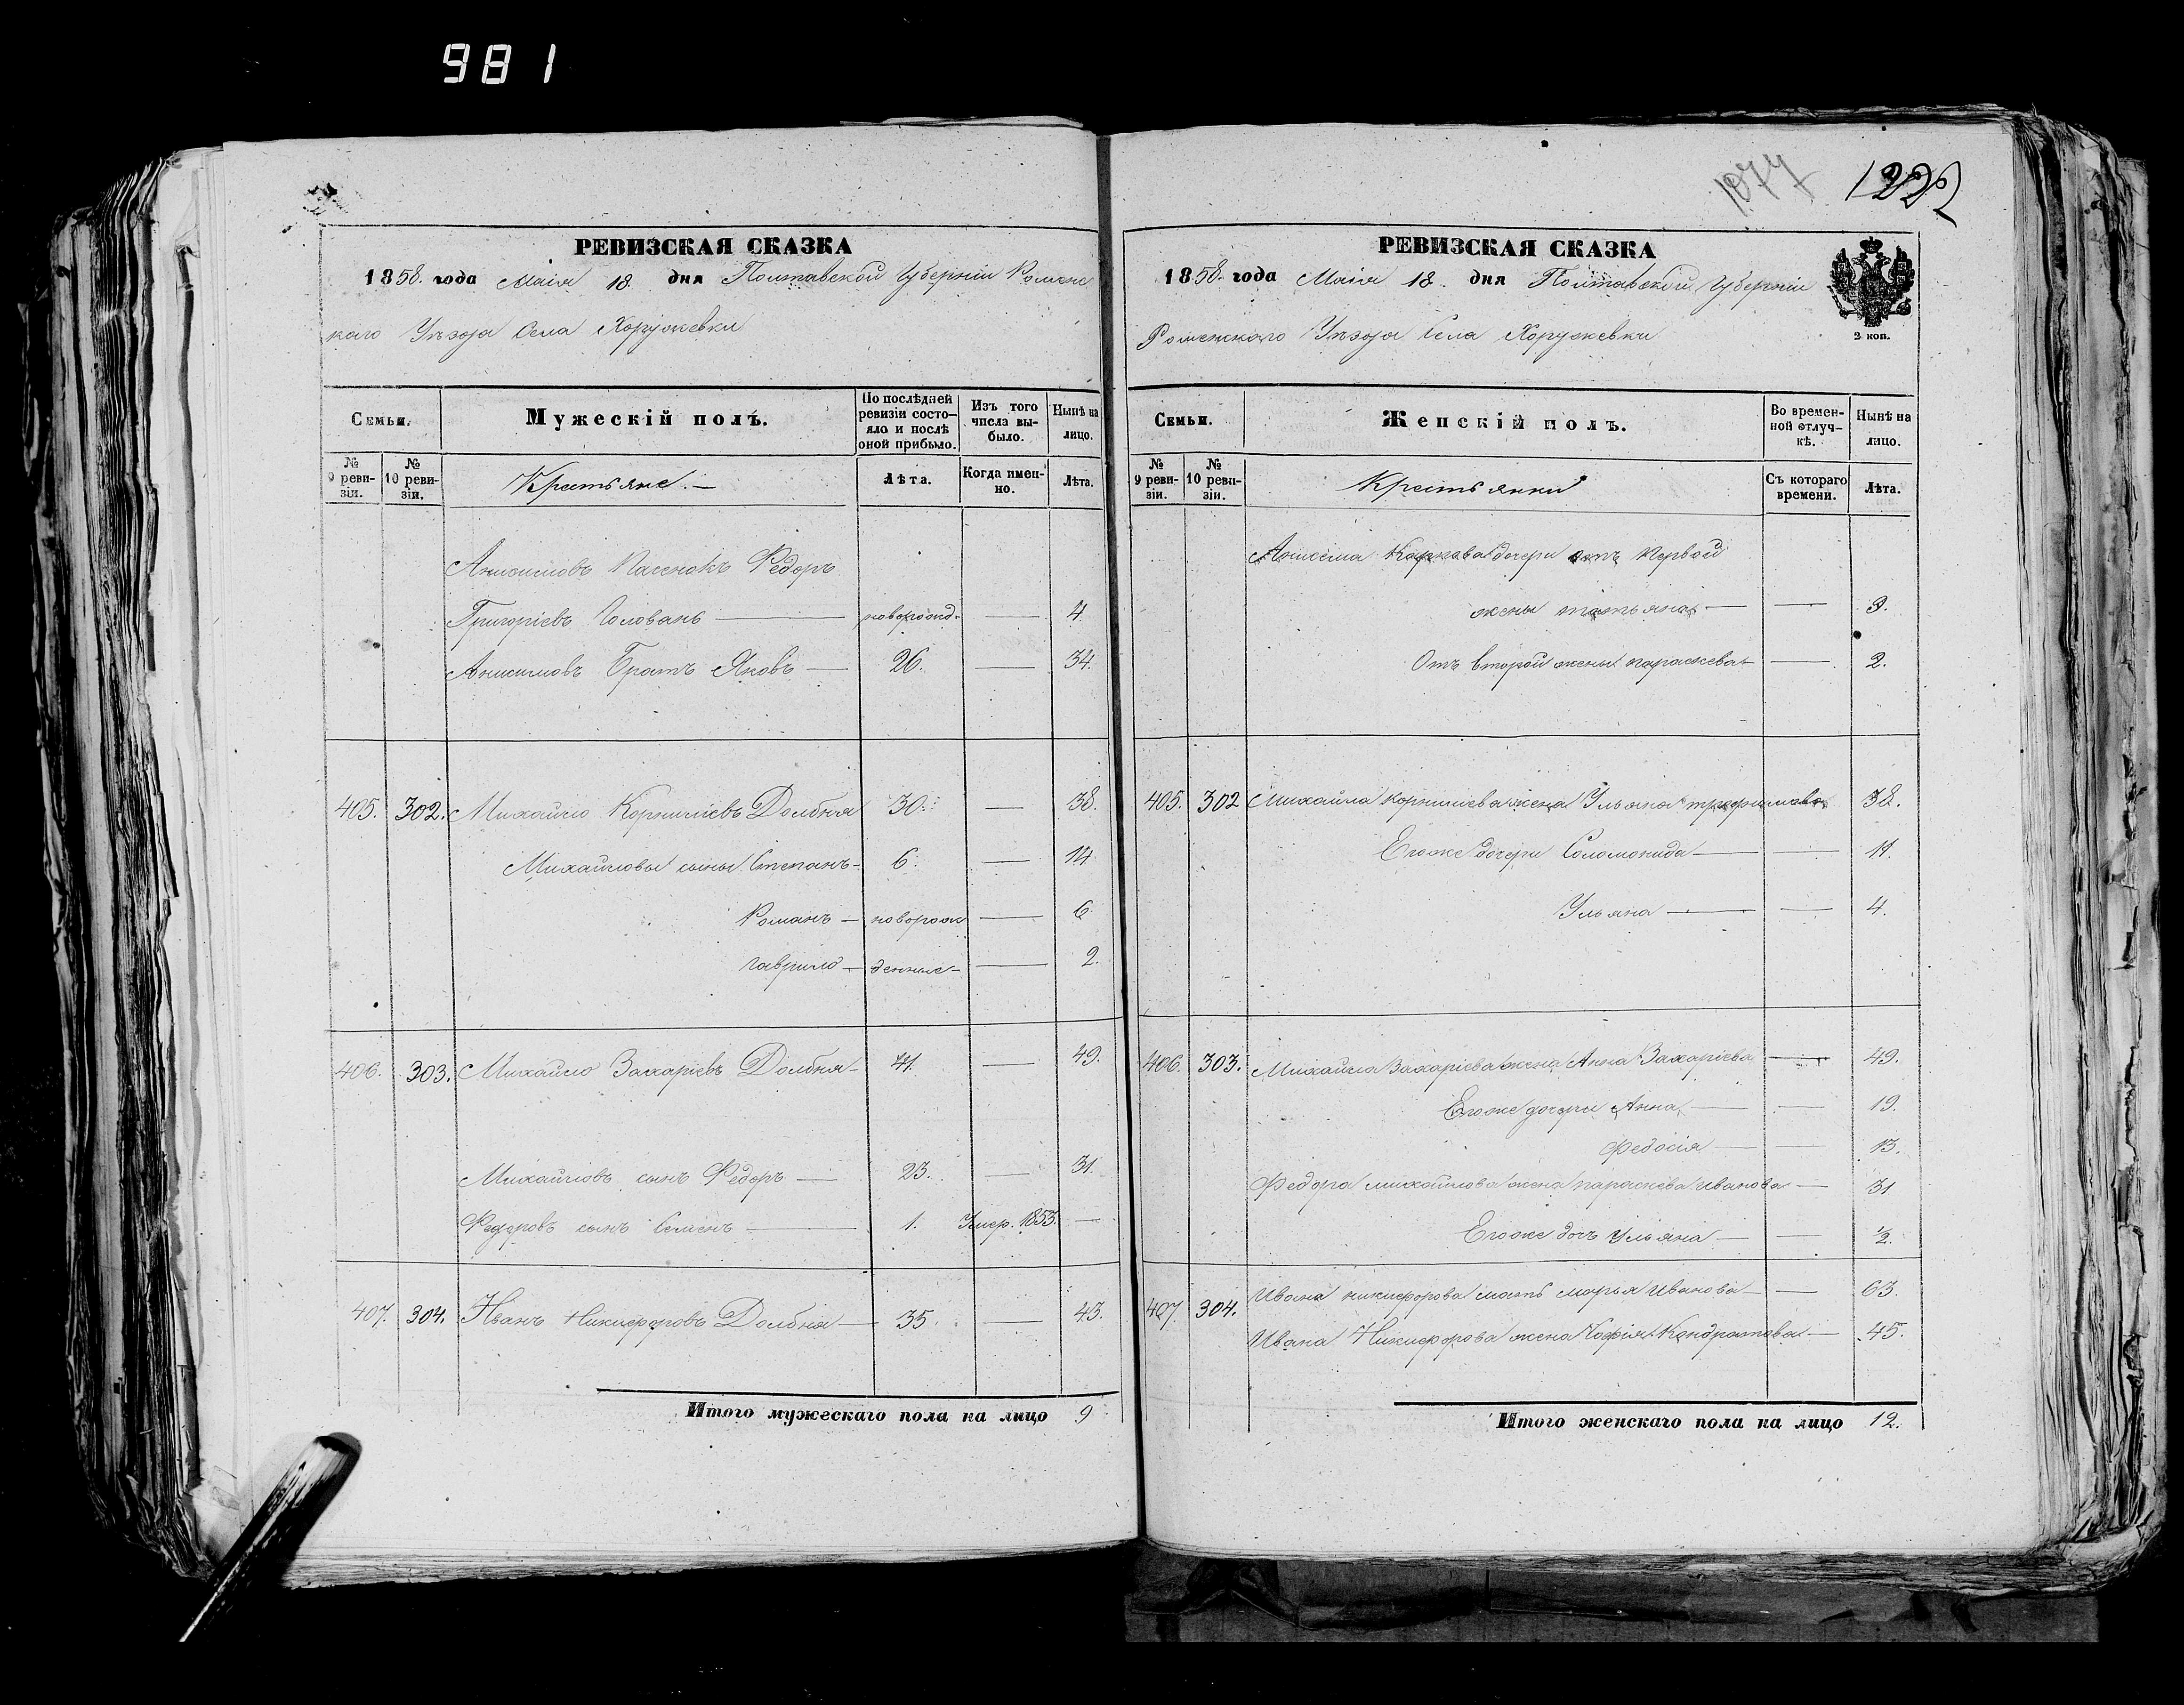 981
РЕВИЗСКАЯ СКАЗКА
1858. года Маія 18. дня Полтавской Губерніи Роменс
каго Уѣзда Села Хоружевки
Семьи.
Мужескій полъ.
По послѣдней ревизіи состояло и послѣ оной прибыло.
Изъ того числа выбыло.
Нынѣ на лицо.
№ 9 ревизіи.
№ 10 ревизіи.
Крестьяне. —
Лѣта.
Когда именно.
Лѣта.
Анисимовъ Пасенокъ Федоръ
Григоріевъ Головань — новорожд. — 4.
Анисимовъ Братъ Яковъ — 26. — 34.
405. 302. Михайло Корниліевъ Долбня 30. — 38.
Михайловы сыны Степанъ — 6. — 14.
Романъ — новорож — 6.
Гаврило — денные — 2.
406. 303. Михайло Захаріевъ Долбня — 41. — 49.
Михайловъ сынъ Федоръ — 23. — 31.
Федоровъ сынъ Семенъ — 1. Умер. 1853. —
407. 304. Иванъ Никифоровъ Долбня — 35. — 43.
Итого мужескаго пола на лицо 9
1077 1222
РЕВИЗСКАЯ СКАЗКА
1858. года Маія 18. дня Полтавской Губерніи
Роменскаго Уѣзда Села Хоружевки
2 коп.
Семьи.
Женскій полъ.
Во временной отлучкѣ.
Нынѣ на лицо.
№ 9 ревизіи.
№ 10 ревизіи.
Крестьянки
Съ котораго времени.
Лѣта.
Анисима Карпова дочери отъ первой
жены татьяна — — 9.
Отъ второй жены параскева — — 2.
405. 302 Михайла корниліева жена Ульяна 38.
Егоже дочери Соломонида — — 11.
Ульяна — — 4.
406. 303. Михайла Захаріева жена Анна Захаріева — 49.
Егоже дочери Анна — — 19.
Федосія — — 13.
Федора михайлова жена параскева иванова — 31.
Егоже доч Ульяна — — ½.
407. 304. Ивана никифорова мать марья Иванова — — 63.
Ивана Никифорова жена Софія Кондратова — 45.
Итого женскаго пола на лицо 12.